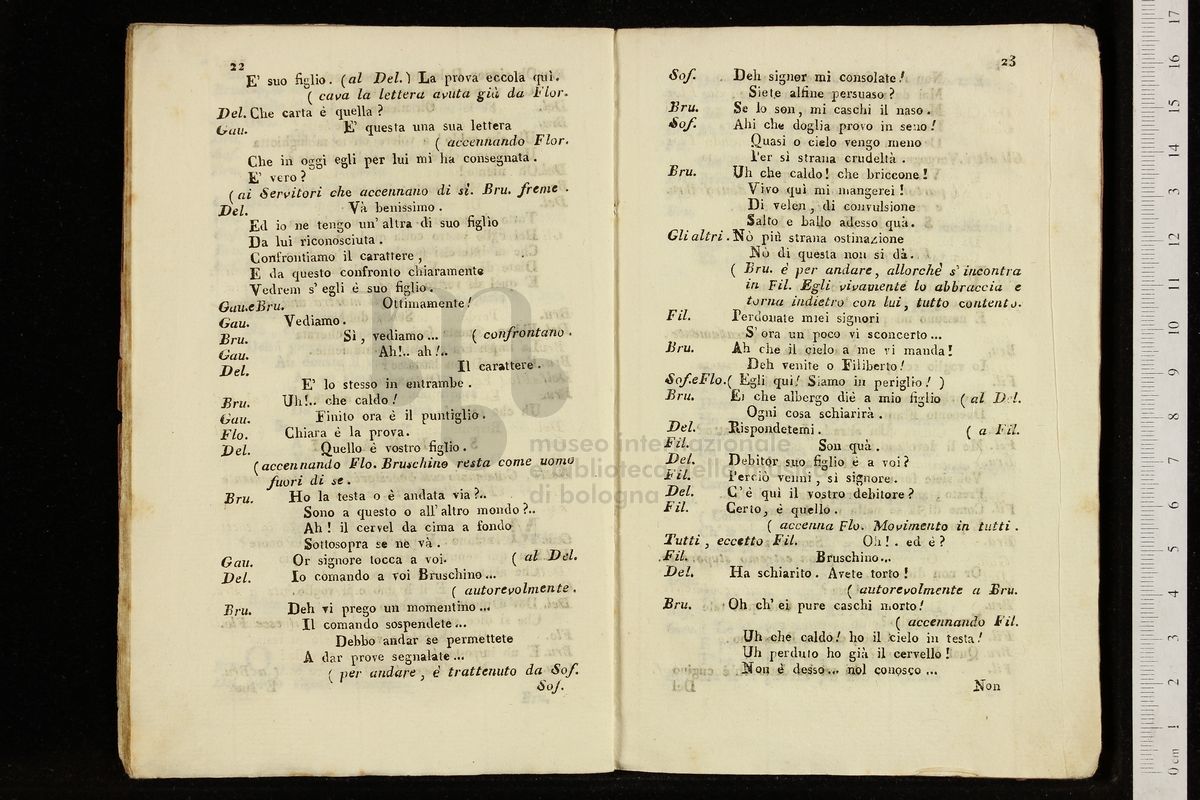 22
E' suo figlio. (al Del.) La prova eccola quì.
( cava la lettera avuta già da Flor.
Del. Che carta è quella ?
Gau. E' questa una sua lettera
( accennando Flor.
Che in oggi egli per lui mi ha consegnata.
E' vero ?
( ai Servitori che accennano di sì. Bru. freme.
Del. Và benissimo.
Ed io ne tengo un' altra di suo figlio
Da lui riconosciuta.
Confrontiamo il carattere,
E da questo confronto chiaramente
Vedrem s' egli è suo figlio.
Gau. e Bru. Ottimamente!
Gau. Vediamo.
Bru. Sì, vediamo... ( confrontano.
Gau. Ah!.. ah!..
Del. Il carattere.
E' lo stesso in entrambe.
Bru. Uh!.. che caldo!
Gau. Finito ora è il puntiglio.
Flo. Chiara è la prova.
Del. Quello è vostro figlio.
( accennando Flo. Bruschino resta come uomo
fuori di se.
Bru. Ho la testa o è andata via ?..
Sono a questo o all' altro mondo ?..
Ah! il cervel da cima a fondo
Sottosopra se ne và.
Gau. Or signore tocca a voi. ( al Del.
Del. Io comando a voi Bruschino...
( autorevolmente.
Bru. Deh vi prego un momentino...
Il comando sospendete...
Debbo andar se permettete
A dar prove segnalate...
( per andare, è trattenuto da Sof.
Sof.
23
Sof. Deh signor mi consolate!
Siete alfine persuaso ?
Bru. Se lo son, mi caschi il naso.
Sof. Ahi che doglia provo in seno!
Quasi o cielo vengo meno
Per sì strana crudeltà.
Bru. Uh che caldo! che briccone!
Vivo quì mi mangerei!
Di velen, di convulsione
Salto e ballo adesso quà.
Gli altri. Nò più strana ostinazione
Nò di questa non si dà.
( Bru. è per andare, allorchè s' incontra
in Fil. Egli vivamente lo abbraccia e
torna indietro con lui, tutto contento.
Fil. Perdonate miei signori
S' ora un poco vi sconcerto...
Bru. Ah che il cielo a me vi manda!
Deh venite o Filiberto!
Sof. e Flo. ( Egli quì! Siamo in periglio! )
Bru. Ei che albergo diè a mio figlio ( al Del.
Ogni cosa schiarirà.
Del. Rispondetemi. ( a Fil.
Fil. Son quà.
Del. Debitor suo figlio è a voi ?
Fil. Perciò venni, sì signore.
Del. C' è quì il vostro debitore ?
Fil. Certo, è quello.
( accenna Flo. Movimento in tutti.
Tutti, eccetto Fil. Oh!. ed è ?
Fil. Bruschino...
Del. Ha schiarito. Avete torto!
( autorevolmente a Bru.
Bru. Oh ch' ei pure caschi morto!
( accennando Fil.
Uh che caldo! ho il cielo in testa!
Uh perduto ho già il cervello!
Non è desso... nol conosco...
Non
museo internazionale
e biblioteca della musica
di bologna
0 cm 1 2 3 4 5 6 7 8 9 10 11 12 13 14 15 16 17